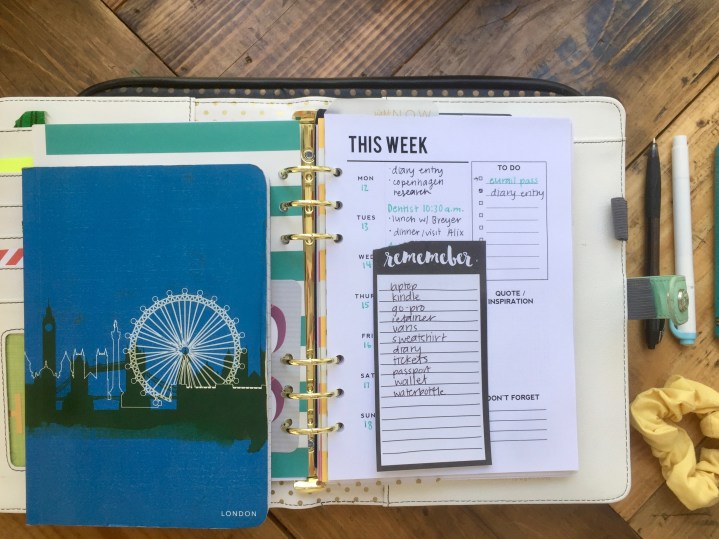 THIS WEEK
MON
12
· diary entry
· copenhagen
research
TUES
13
Dentist 10:30 a.m.
· lunch w/ Breyer
· dinner/visit Alix
WED
14
THUR
15
FRI
16
SAT
17
SUN
18
TO DO
eurail pass
diary entry
QUOTE /
INSPIRATION
DON'T FORGET
rememeber
laptop
kindle
go-pro
retainer
vans
sweatshirt
diary
tickets
passport
wallet
waterbottle
LONDON